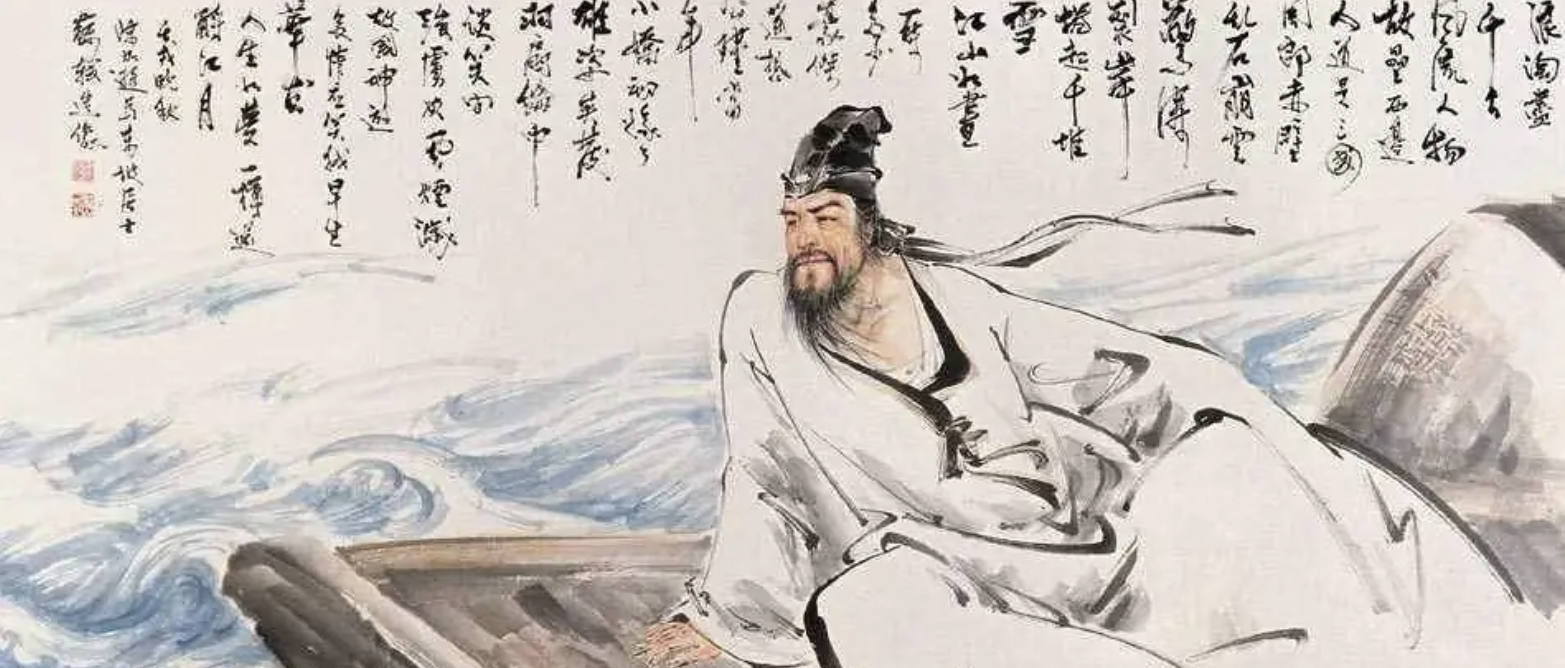 浪淘盡
千古
風流人物
故壘西邊
人道是三國
周郎赤壁
亂石崩雲
驚濤
裂岸
捲起千堆
雪
江山如畫
一時
多少
豪傑
遙想
公瑾當
年
小喬初嫁了
雄姿英發
羽扇綸巾
談笑間
強虜灰飛煙滅
故國神遊
多情應笑我早生
華髮
人生如夢一樽還
酹江月
壬戌晚秋
寫東坡居士
造像